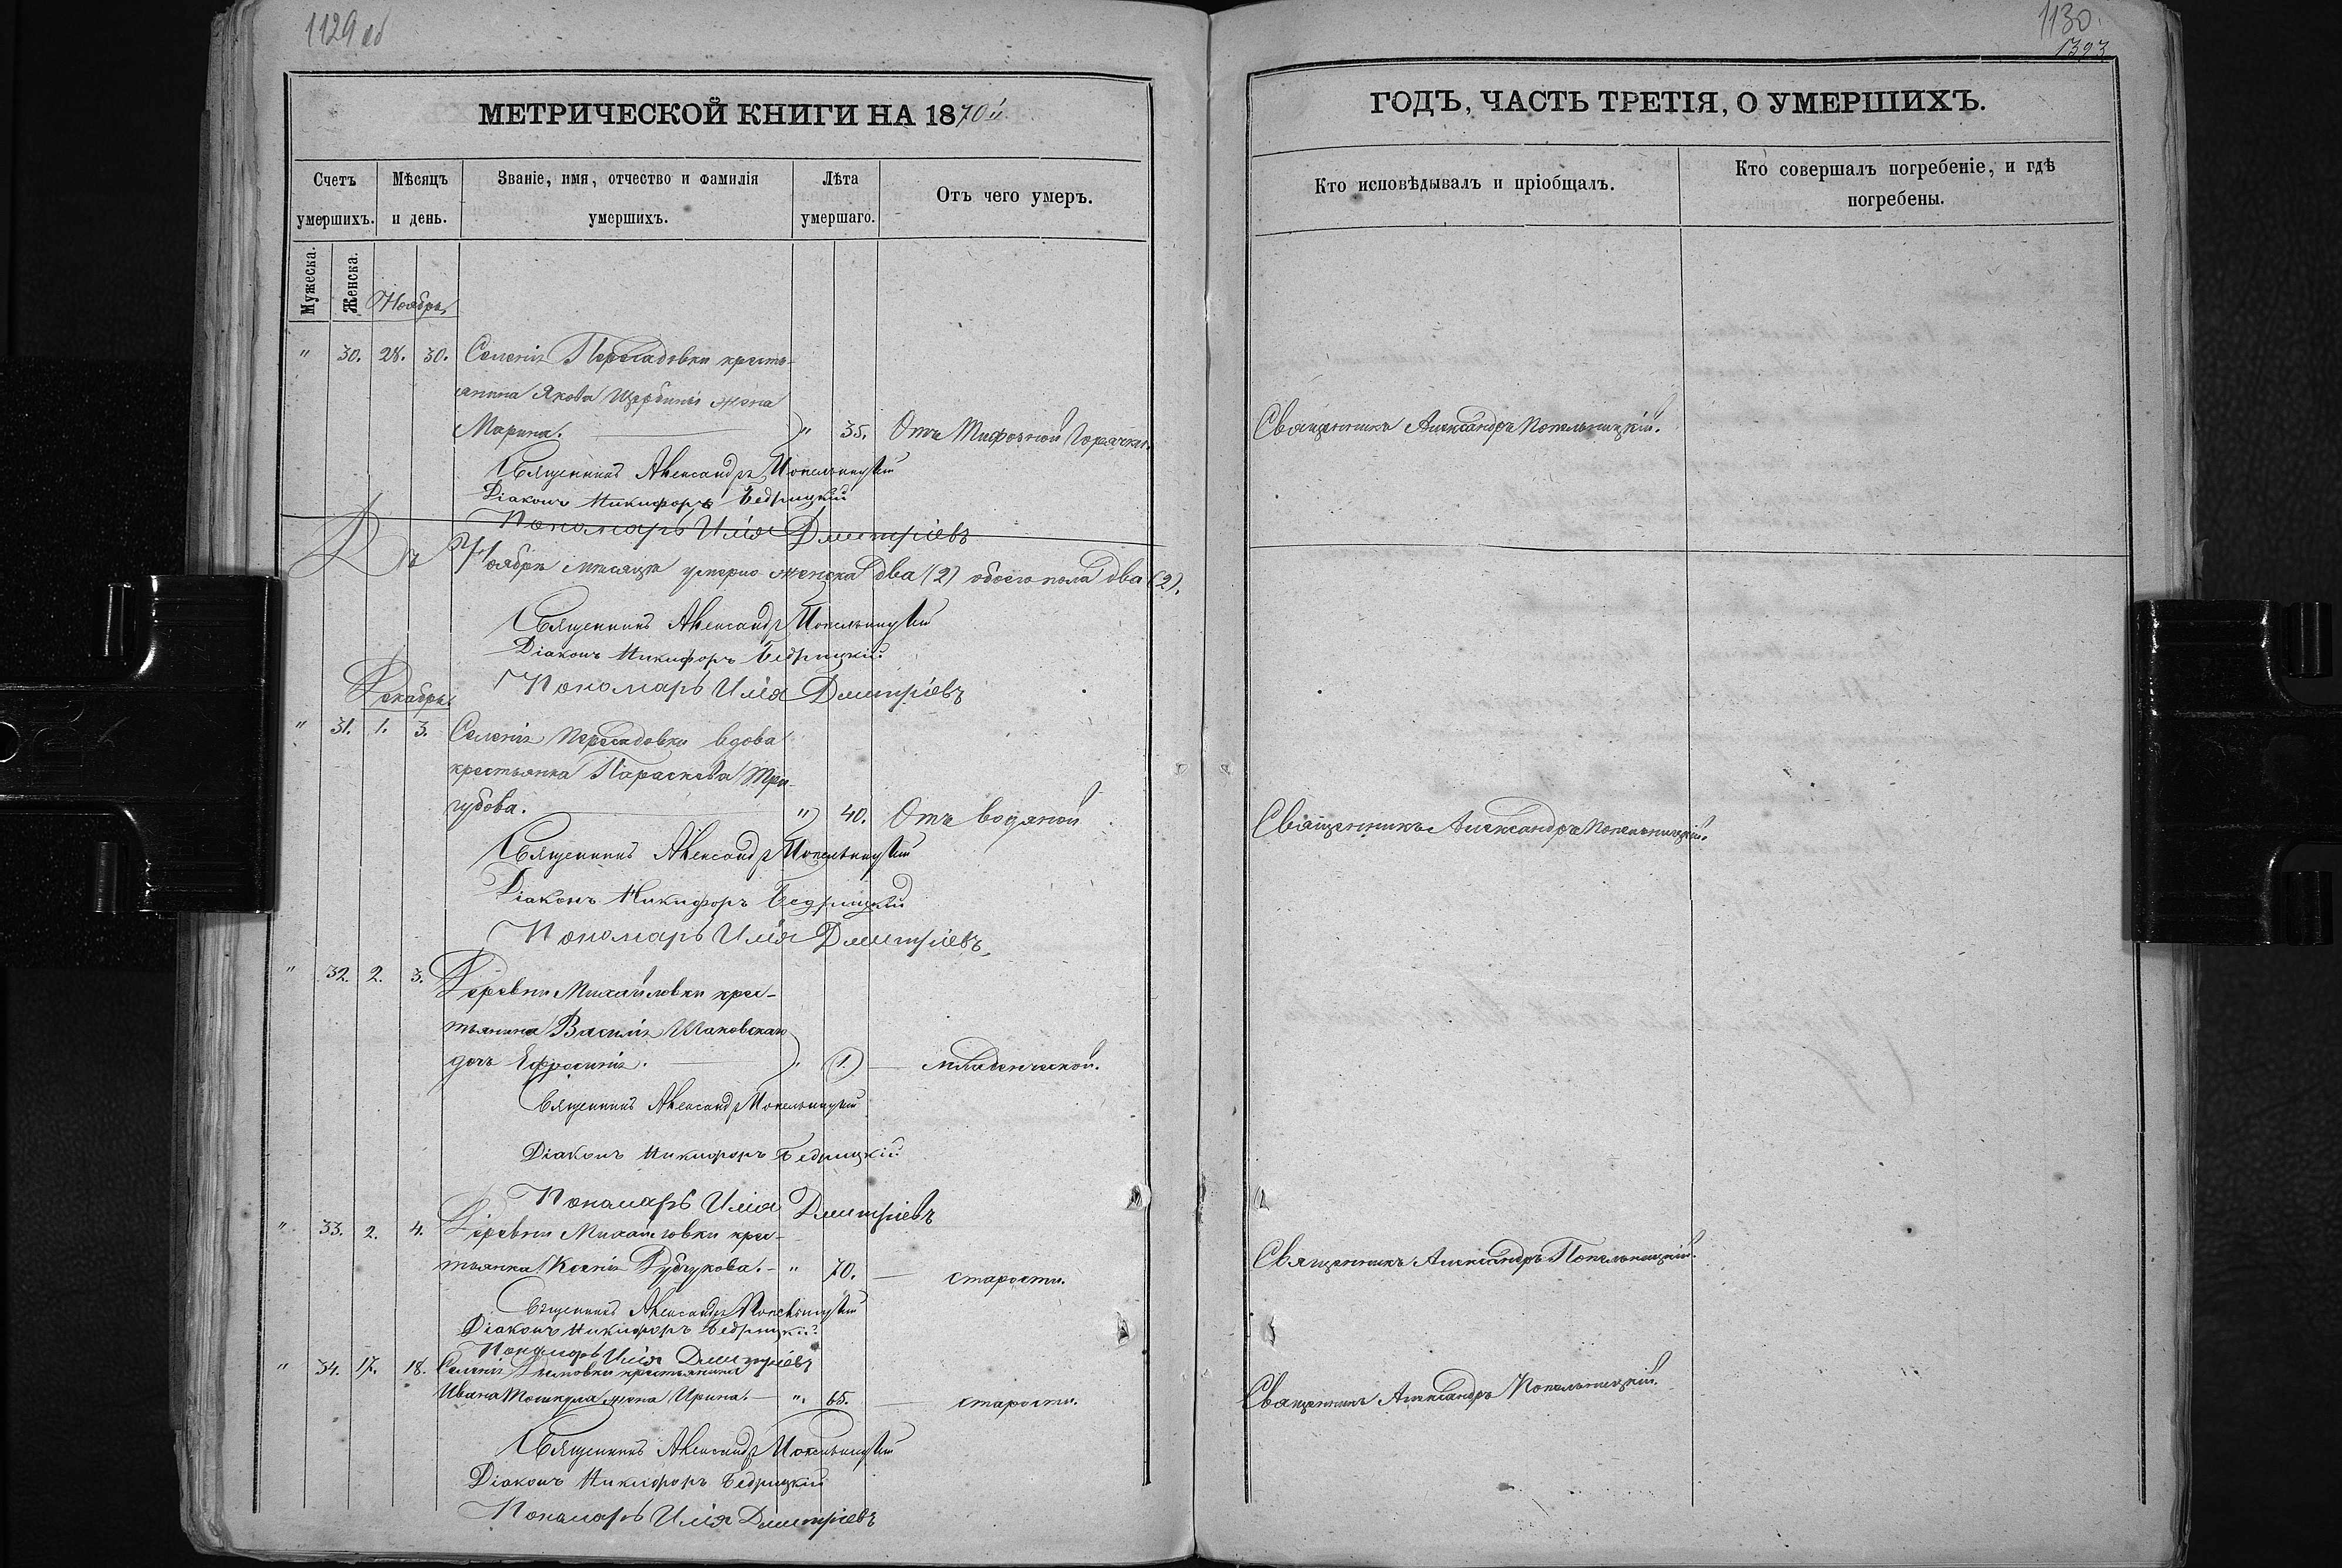 1129 об
МЕТРИЧЕСКОЙ КНИГИ НА 1870й
Счетъ умершихъ.
Мѣсяцъ и день.
Званіе, имя, отчество и фамилія умершихъ.
Лѣта умершаго.
Отъ чего умеръ.
Мужеска.
Женска.
Ноябрь
" 30. 28. 30. Селенія Пересадовки кресть-
янина Якова Щербины жена
Марина. " 35. Отъ Тифозной Горячки.
Священникъ Александръ Попельницкій
Діаконъ Никифоръ Бедрицкій
Пономарь Илія Дмитріевъ
Въ Ноябрѣ мѣсяцѣ умерло женска два (2) обоего пола два (2).
Священникъ Александръ Попельницкій
Діаконъ Никифоръ Бедрицкій
Пономарь Илія Дмитріевъ
Декабрь
" 31. 1. 3. Селенія Пересадовки вдова
крестьянка Параскева Три-
губова. " 40. Отъ водяной
Священникъ Александръ Попельницкій
Діаконъ Никифоръ Бедрицкій
Пономарь Илія Дмитріевъ
" 32. 2. 3. Деревни Михайловки крес-
тьянина Василія Шаховскаго
дочь Ефросинія. (1.) — младенческой.
Священникъ Александръ Попельницкій
Діаконъ Никифоръ Бедрицкій
Пономарь Илія Дмитріевъ
" 33. 2. 4. Деревни Михайловки крес-
тьянка Ксенія — " 70. — старости.
Священникъ Александръ Попельницкій
Діаконъ Никифоръ Бедрицкій
Пономарь Илія Дмитріевъ
" 34. 17. 18. Селенія крестьянина
Ивана жена Ирина. — " 65. — старости.
Священникъ Александръ Попельницкій
Діаконъ Никифоръ Бедрицкій
Пономарь Илія Дмитріевъ
1130.
1393
ГОДЪ, ЧАСТЬ ТРЕТІЯ, О УМЕРШИХЪ.
Кто исповѣдывалъ и пріобщалъ.
Кто совершалъ погребеніе, и гдѣ
погребены.
Священникъ Александръ Попельницкій.
Священникъ Александръ Попельницкій.
Священникъ Александръ Попельницкій.
Священникъ Александръ Попельницкій.